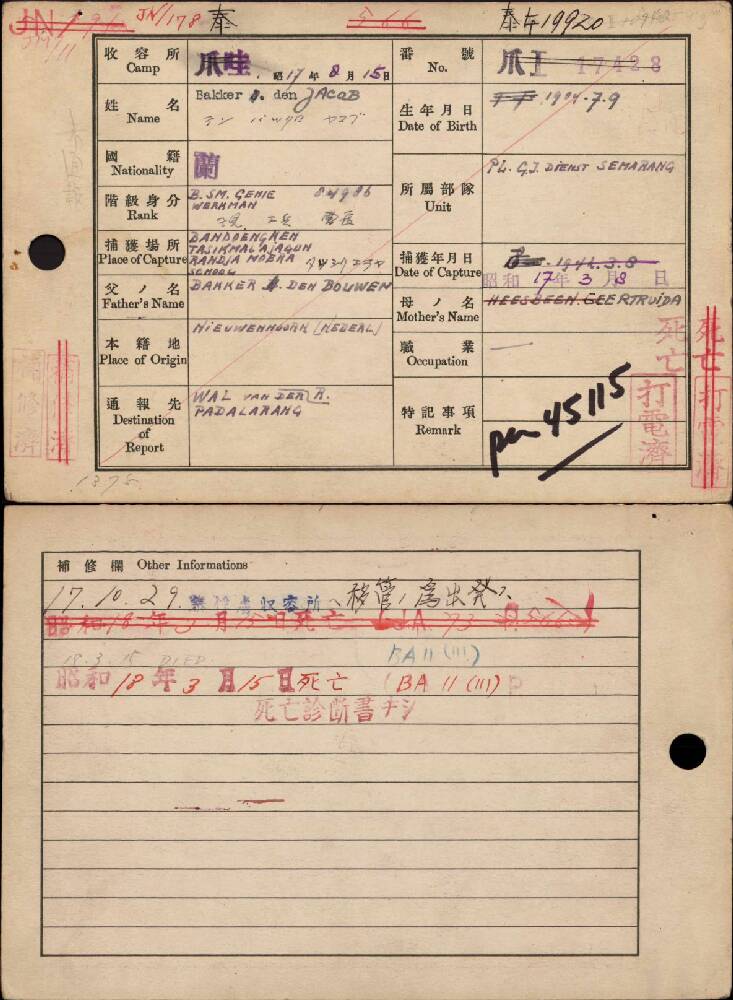 JN/178 奉
566
泰4 19920
收容所 Camp
爪哇 昭17年8月15日
番號 No.
爪I 17428
姓名 Name
Bakker A. den JACOB
デン バッケル ヤコブ
生年月日 Date of Birth
1904.7.9
國籍 Nationality
蘭
階級身分 Rank
B.SM. GENIE 84986
WERKMAN
工兵
所屬部隊 Unit
PL. G.J. DIENST SEMARANG
捕獲場所 Place of Capture
BANDOENGREN
TASIKMALAJAGUN
RANDJA MOERA
SCHOOL
捕獲年月日 Date of Capture
1942.3.8
昭和17年3月8日
父ノ名 Father's Name
BAKKER A. DEN BOUWEN
母ノ名 Mother's Name
HEESBEEN. GEERTRUIDA
本籍地 Place of Origin
NIEUWENHOORN (NEDERL)
職業 Occupation
—
通報先 Destination of Report
WAL VAN DER R.
PADALARANG
特記事項 Remark
pen 45115
死亡
打電濟
死亡
打電濟
補修濟
補修濟
1375
補修欄 Other Informations
17.10.29. 收容所へ移管ノ為出発ス
昭和18年3月15日死亡
18.3.15 DIED
BA 11 (III)
昭和18年3月15日死亡 (BA 11 (III)) P
死亡診断書ナシ